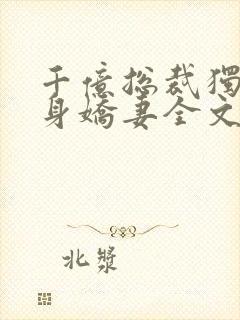 千億総裁獨
身嬌妻全文
北漿